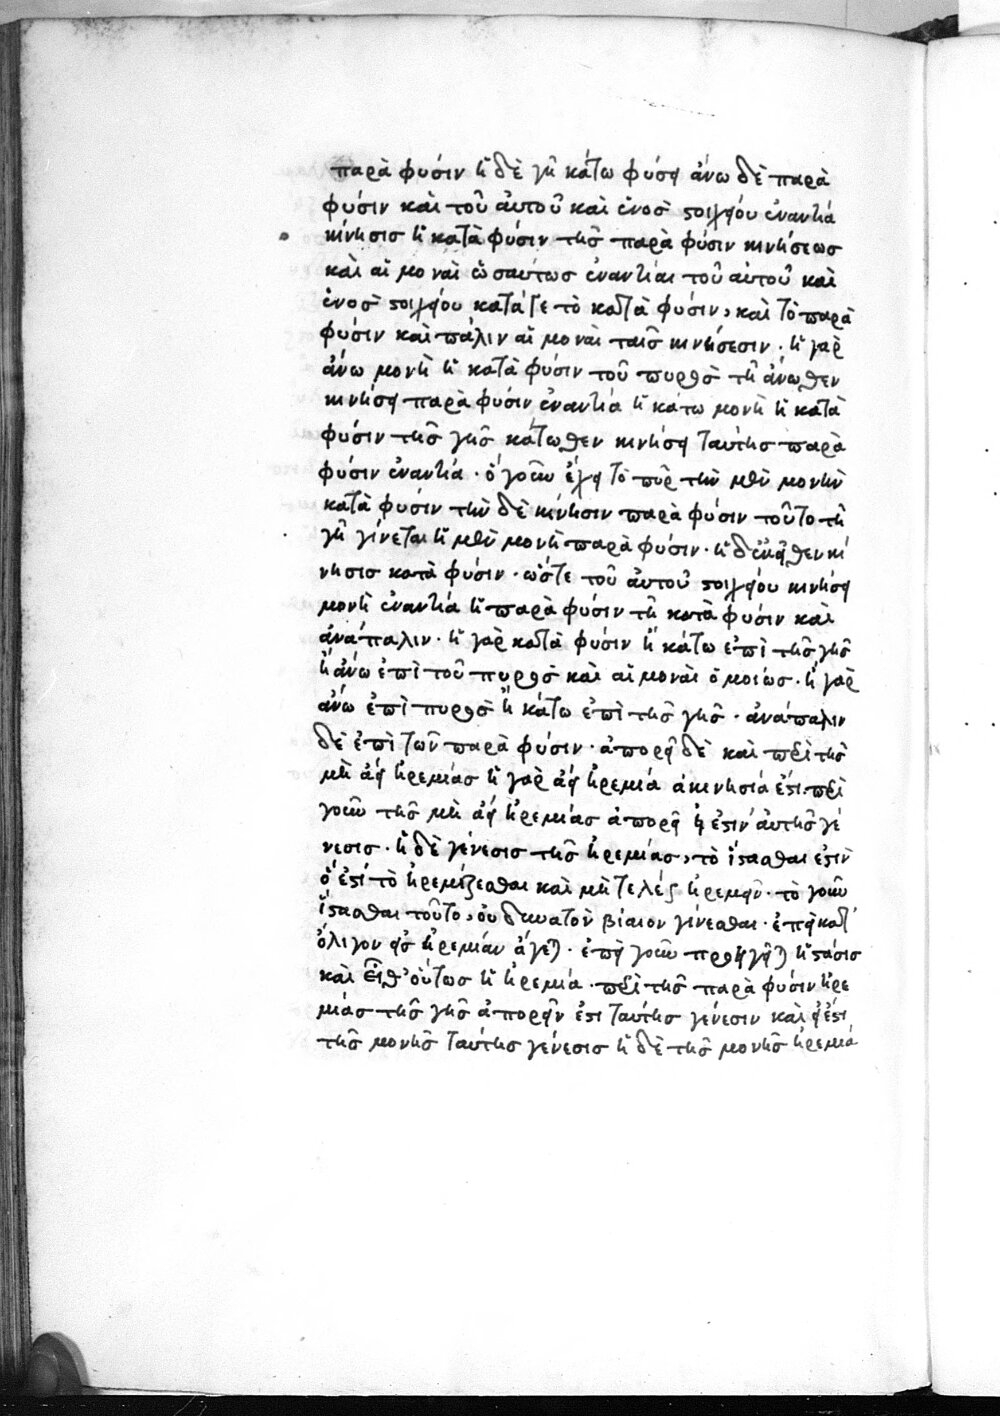 παρὰ φύσιν ἡ δὲ γῆ κάτω φύσει ἄνω δὲ παρὰ
φύσιν καὶ τοῦ ἀυτοῦ καὶ ἑνὸσ στοιχείου ἐναντία
κίνησισ ἡ κατὰ φύσιν τῆσ παρὰ φύσιν κινήσεωσ
καὶ αἱ μοναὶ ὡσαύτωσ ἐναντίαι τοῦ αὐτοῦ καὶ
ἑνὸσ στοιχείου κατά γε τὸ κατὰ φύσιν, καὶ τὸ παρὰ
φύσιν καὶ πάλιν αἱ μοναὶ ταῖσ κινήσεσιν · ἡ γὰρ
ἄνω μονὴ ἡ κατὰ φύσιν τοῦ πυρὸσ τῆ ἄνωθεν
κινήσει παρὰ φύσιν ἐναντία ἡ κάτω μονὴ ἡ κατὰ
φύσιν τῆσ γῆσ κάτωθεν κινήσει ταύτησ παρὰ
φύσιν ἐναντία · ὃ γοῦν ἔχει τὸ πῦρ τὴν μὲν μονὴν
κατὰ φύσιν τὴν δὲ κίνησιν παρὰ φύσιν τοῦτο τῆ
γῆ γίνεται ἡ μὲν μονὴ παρὰ φύσιν · ἡ δ' ἐκεῖθεν κί
νησισ κατὰ φύσιν · ὥστε τοῦ ἀυτοῦ στοιχείου κινήσει
μονὴ ἐναντία ἡ παρὰ φύσιν τῆ κατὰ φύσιν καὶ
ἀνάπαλιν · ἡ γὰρ κατὰ φύσιν ἢ κάτω ἐπὶ τῆσ γῆσ
ἢ ἄνω ἐπὶ τοῦ πυρὸσ καὶ αἱ μοναὶ ὁμοίωσ · ἢ γὰρ
ἄνω ἐπὶ πυρὸσ ἢ κάτω ἐπὶ τῆσ γῆσ · ἀνάπαλιν
δὲ ἐπὶ τῶν παρὰ φύσιν · ἀπορεῖ δὲ καὶ περὶ τῆσ
μὴ ἀεὶ ἠρεμίασ ἡ γὰρ ἀεὶ ἠρεμία ἀκινησία ἐστι περὶ
γοῦν τῆσ μὴ ἀεὶ ἠρεμίασ ἀπορεῖ εἰ ἐστιν ἀυτῆσ γέ
νεσισ · ἡ δὲ γένεσισ τῆσ ἠρεμίασ, τὸ ἵστασθαι ἐστὶν
ὅ ἐστι τὸ ἠρεμίζεσθαι καὶ μὴ τελέωσ ἠρεμεῖν · τὸ γοῦν
ἵστασθαι τοῦτο, ὀυ δυνατὸν βίαιον γίνεσθαι · ἐπεὶ κατ'
ὀλίγον εἰσ ἠρεμίαν ἄγεται · ἐπεὶ γοῦν προηγεῖται ἡ στάσισ
καὶ εἶθ' ὅυτωσ ἡ ἠρεμία · περὶ τῆσ παρὰ φύσιν ἠρε
μίασ τῆσ γῆσ ἀπορεῖν ἐστι ταύτησ γένεσιν καὶ εἰ ἐστι
τῆσ μονῆσ ταύτησ γένεσισ ἡ δὲ τῆσ μονῆσ ἠρεμία